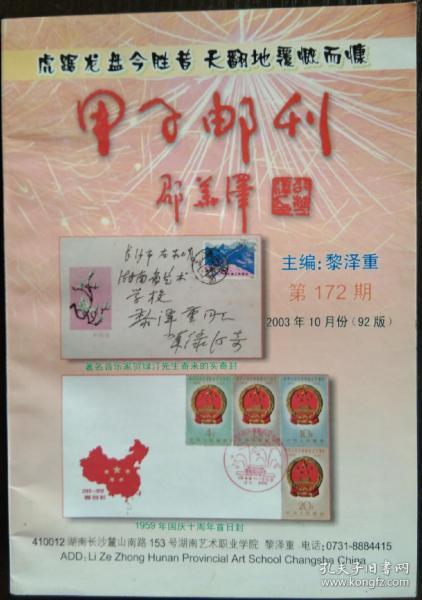 虎踞龙盘今胜昔 天翻地覆慨而慷
甲子邮刊
邵华泽
主编:黎泽重
第172期
2003年10月份(92版)
长沙市
湖南省艺术
学校
黎泽重同志
贺绿汀寄
著名音乐家贺绿汀先生寄来的实寄封
4分
10分
20分
1959年国庆十周年首日封
410012 湖南长沙麓山南路153号湖南艺术职业学院 黎泽重 电话:0731-8884415
ADD: Li Ze Zhong Hunan Provincial Art School Changsha China
孔夫子旧书网